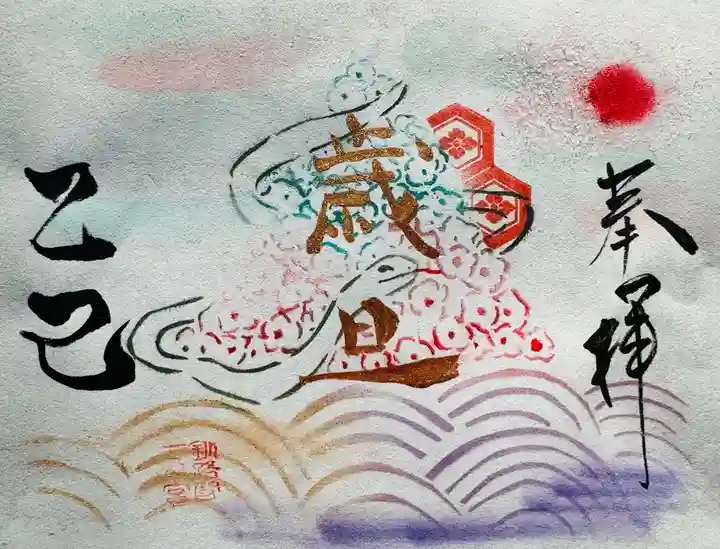 奉拝
歳旦
乙巳